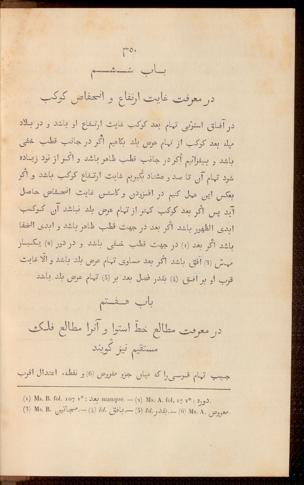 ٣٥٠
باب ششم
در معرفت غایت ارتفاع و انحفاض کوکب
در آفاق استوئی تمام بعد کوکب غایت ارتفاع او باشد و در بلاد
میله بعد کوکب از تمام عرض بلد بکاهیم اگر در جانب قطب خفی
باشد و بیفزائیم اگر در جانب قطب ظاهر باشد و اگر از نود زیاده
شود تمام آن تا صد و هشتاد بگیریم غایت ارتفاع کوکب باشد و اگر
بعکس این عمل کنیم در افزودن و کاستن غایت انحفاض حاصل
آید پس اگر بعد کوکب کمتر از تمام عرض بلد نباشد آن کوکب
ابدی الظهور باشد اگر بعد در جهت قطب ظاهر باشد و ابدی الخفا
باشد اگر بعد (1) در جهت قطب خفی باشد و در دور (2) یکبار
مماس (3) افق باشد اگر بعد مساوی تمام عرض بلد باشد و الّا غایت
قرب او بر افق (4) بقدر فضل بعد بر (5) تمام عرض بلد باشد
باب هفتم
در معرفت مطالع خطّ استوا و آنرا مطالع فلک
مستقیم نیز گویند
جیب تمام قوسی را که میان جزو مفروض (6) و نقطه اعتدال اقرب
(1) Ms. B. fol. 107 v°: بعد manque. — (2) Ms. A. fol. 17 v°: دوره.
(3) Ms. B. — (4) Id. بافق. — (5) Id. بقدر. — (6) Ms. A. معروض.